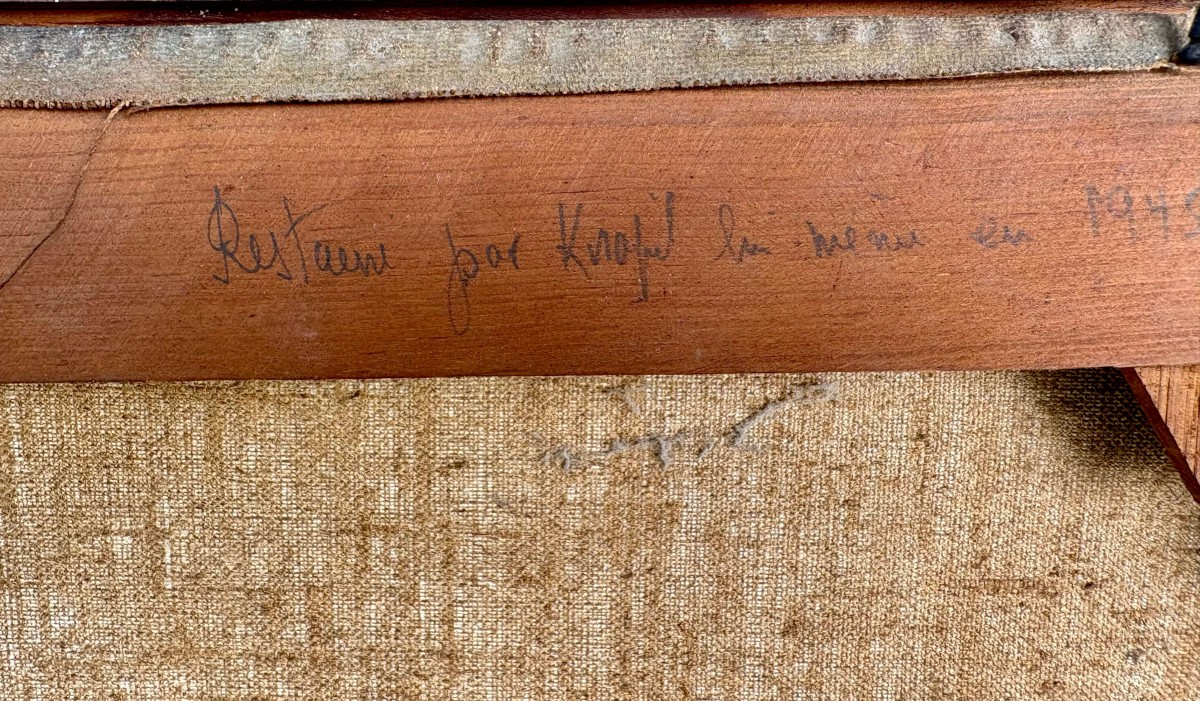 Restauré par Krafft lui-même en 194